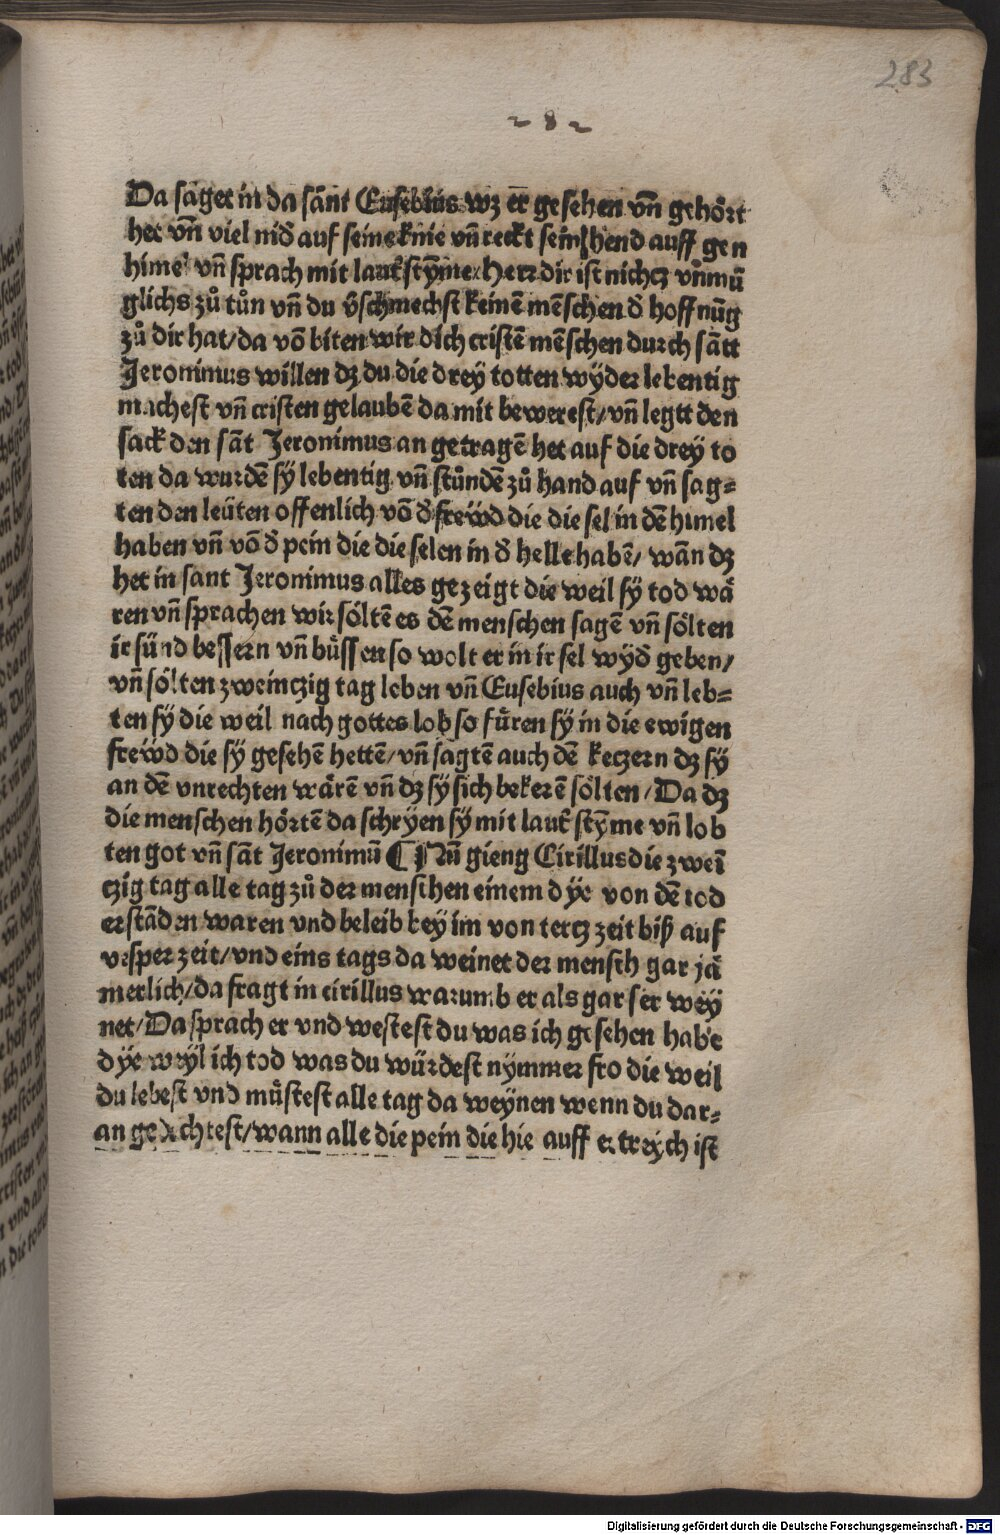 283
282
Da saget in da sãnt Eusebius wz er gesehen vñ gehȯrt
het vñ viel nid̄ auf seine knie vñ reckt sein hend auff gen
himel vñ sprach mit laut̄ stȳme/ Herr dir ist nichcz vnmü
glichs zů tůn vñ du v̄schmechst keinē mēschen d̄ hoffnūg
zů dir hat/ da vō biten wir dich cristē mēschen durch sātt
Jeronimus willen dz du die drey totten wyder lebentig
machest vñ cristen gelaubē da mit bewerest/ vñ legtt den
sack den sāt Jeronimus an getragē het auf die drey to
ten da wurdē sy lebentig vñ stůndē zů hand auf vñ sag⸗
ten den leüten offenlich vō d̄ frewd die die sel in dē himel
haben vñ vō d̄ pein die die selen in d̄ helle habē/ wān dz
het in sant Jeronimus alles gezeigt die weil sy tod wå
ren vñ sprachen wir sȯltē es dē menschen sagē vñ sȯlten
ir sünd bessern vñ bůssen so wolt er in ir sel wyd̄ geben/
vñ sȯlten zweinczig tag leben vñ Eusebius auch vñ leb⸗
ten sy die weil nach gottes lob so fůren sy in die ewigen
frewd die sy gesehē hettē/ vñ sagtē auch dē keczern dz sy
an dē vnrechten wårē vñ dz sy sich bekerē sȯlten/ Da dz
die menschen hȯrtē da schryen sy mit laut̄ stȳme vñ lob
ten got vñ sāt Jeronimū ¶ Nū gieng Cirillus die zweī
czig tag alle tag zů der menschen einem dye von dē tod
erstāden waren vnd beleib bey im von tercz zeit biß auf
vesper zeit/ vnd eins tags da weinet der mensch gar jå
merlich/ da fragt in cirillus warumb er als gar ser wey
net/ Da sprach er vnd westest du was ich gesehen habe
dye weyl ich tod was du würdest nymmer fro die weil
du lebest vnd můstest alle tag da weynen wenn du dar⸗
an gedechtest/ wann alle die pein die hie auff ertreych ist
Digitalisierung gefördert durch die Deutsche Forschungsgemeinschaft - DFG